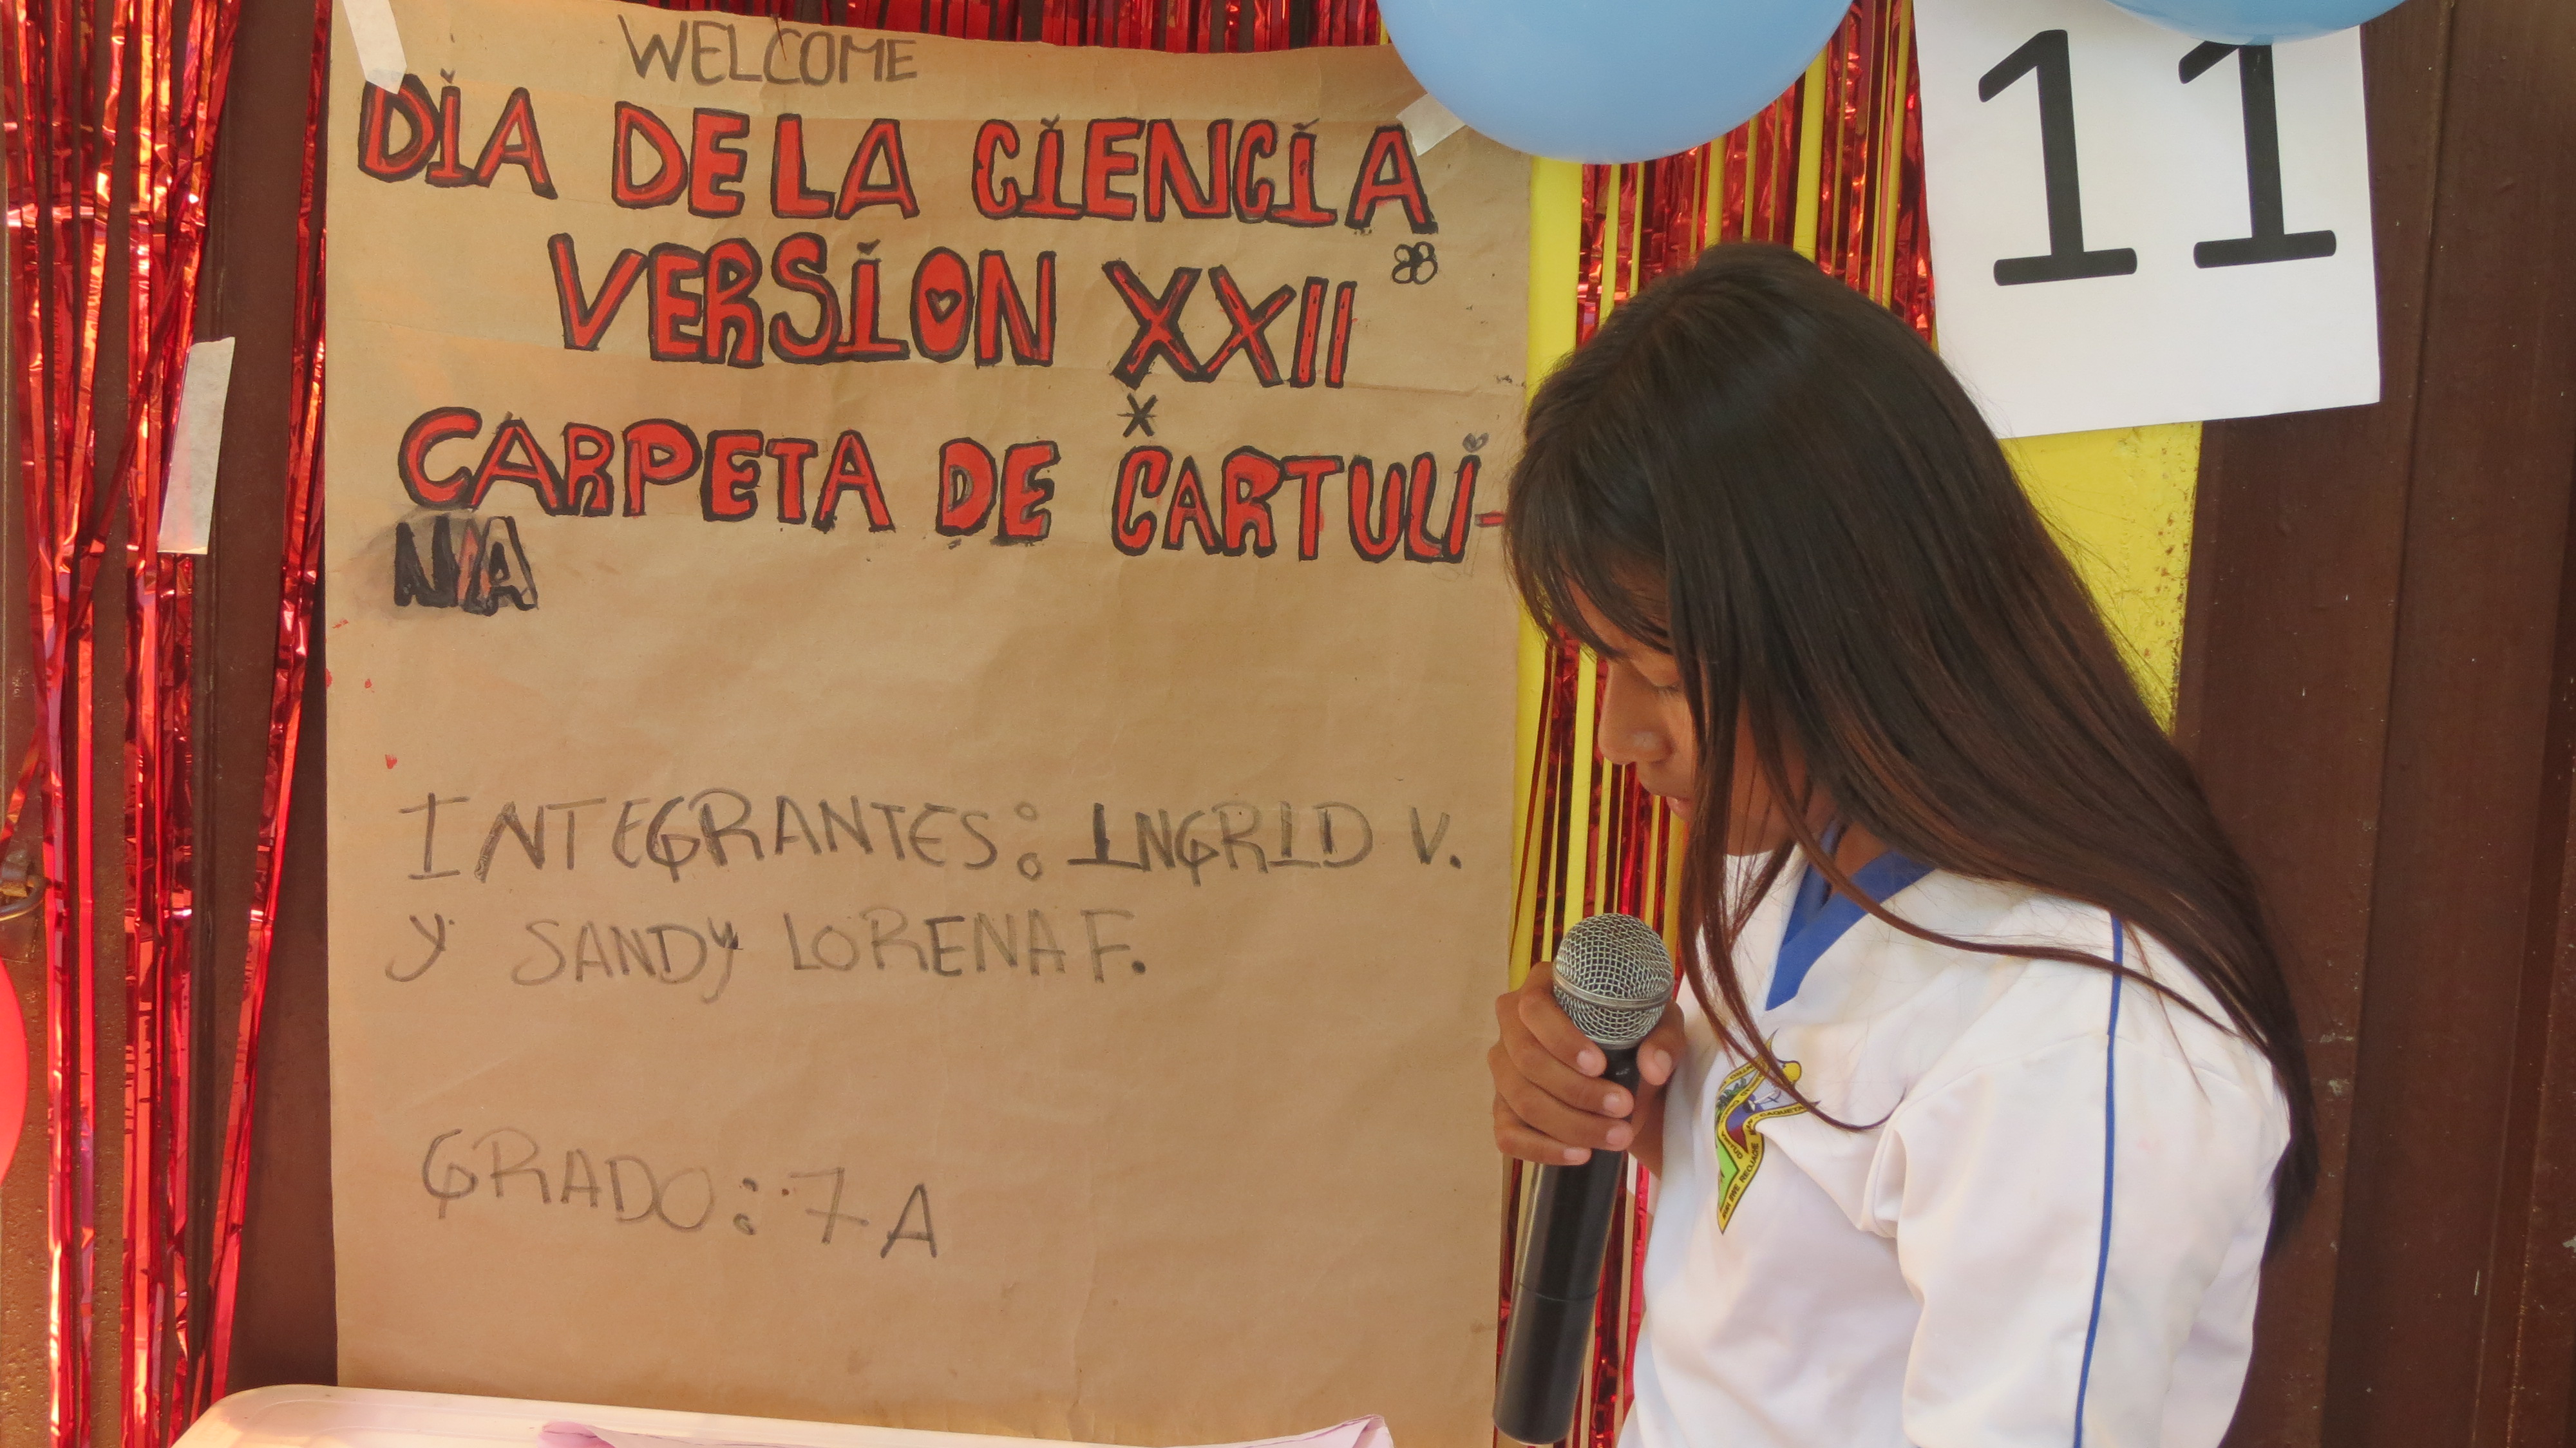 WELCOME
DIA DE LA CIENCIA
VERSION XXII
CARPETA DE CARTULI-
NA
INTEGRANTES: INGRID V.
Y SANDY LORENA F.
GRADO: 7A
11
CAQUETA